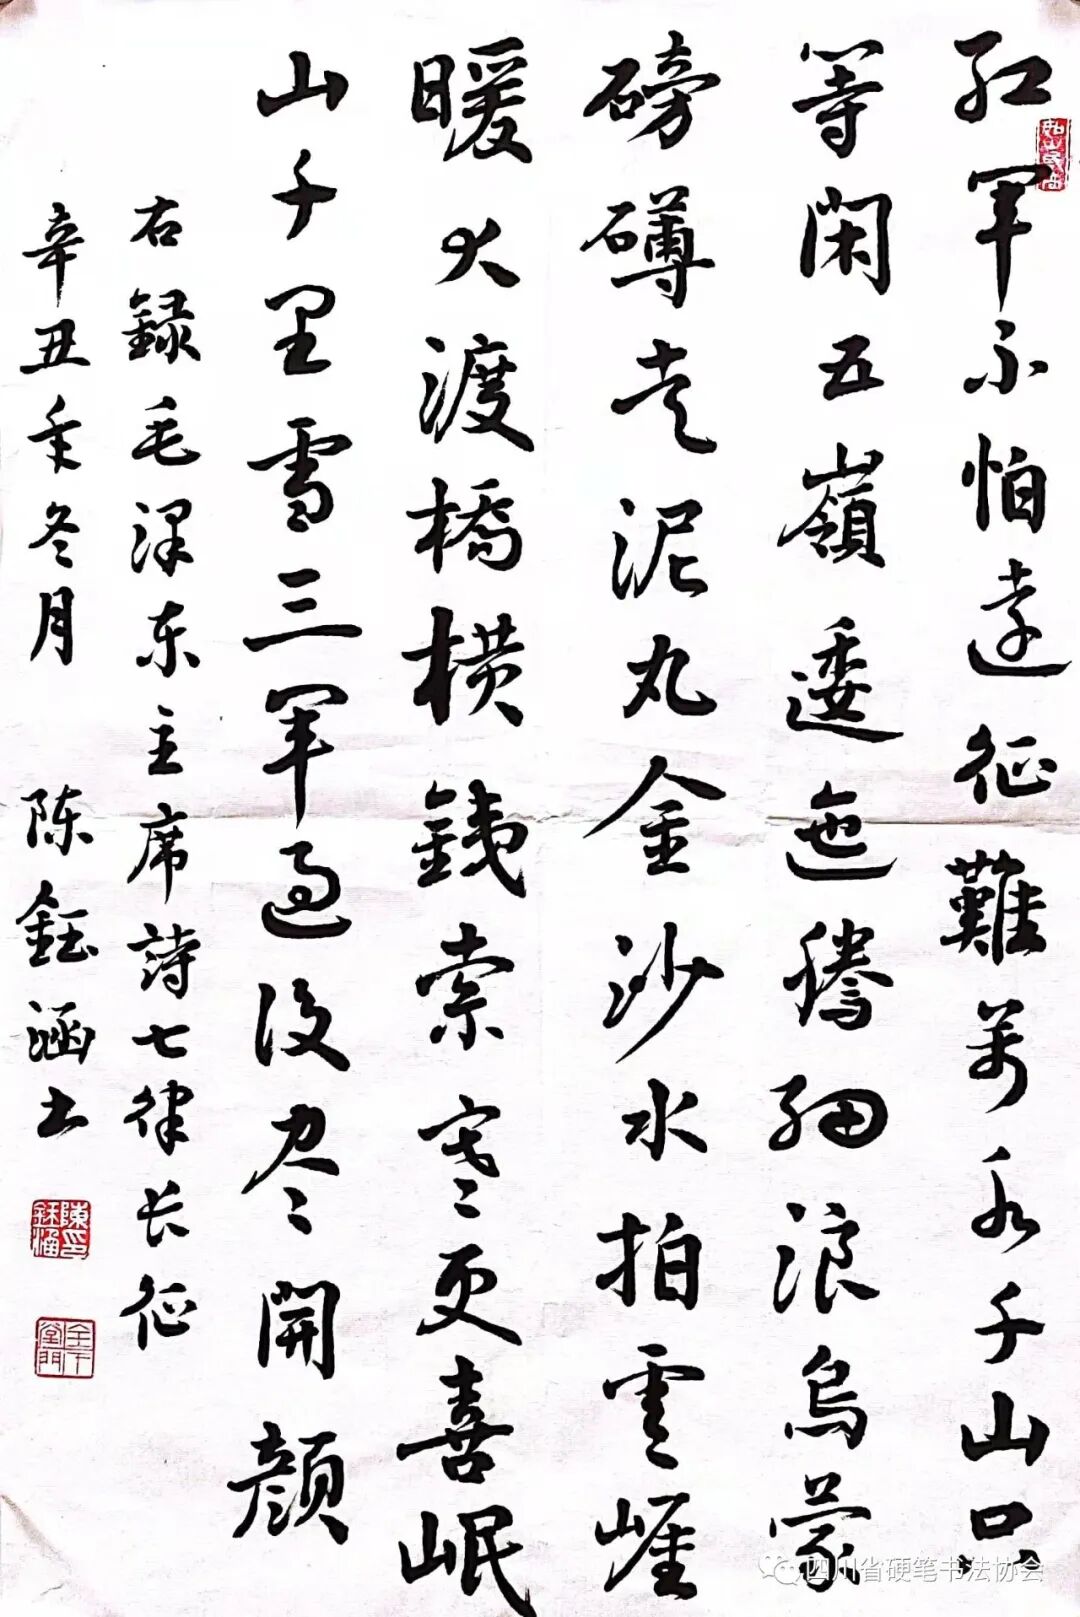 红军不怕遠征難萬水千山只
等闲五嶺逶迤騰細浪烏蒙
磅礴走泥丸金沙水拍雲崖
暖大渡橋横鐵索寒更喜岷
山千里雪三軍過後尽開顔
右録毛泽东主席詩七律长征
辛丑年冬月 陈鈺涵书
四川省硬笔书法协会